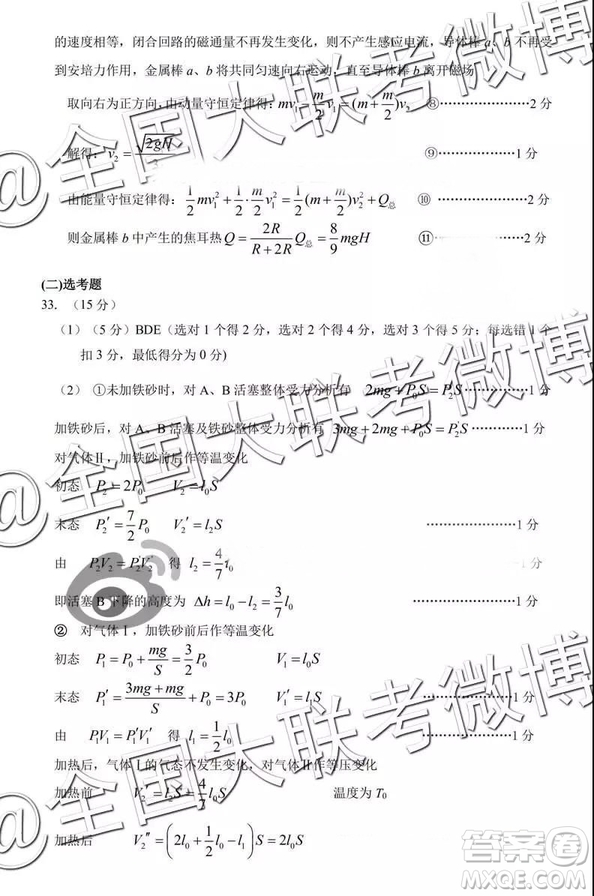 的速度相等，闭合回路的磁通量不再发生变化，则不产生感应电流，导体棒 a、b 不再受
到安培力作用，金属棒 a、b 将共同匀速向右运动，直至导体棒 b 离开磁场
取向右为正方向，由动量守恒定律得：mv₁ − (m/2)v₁ = (m + m/2)v₂ ⑧ ………………2 分
解得：v₂ = √(2gH)/3 ⑨ ………………1 分
由能量守恒定律得：(1/2)mv₁² + (1/2)·(m/2)v₁² = (1/2)(m + m/2)v₂² + Q总 ⑩ ………………2 分
则金属棒 b 中产生的焦耳热 Q = (2R/(R+2R))Q总 = (8/9)mgH ⑪ ………………2 分
(二)选考题
33. （15 分）
（1）（5 分）BDE（选对 1 个得 2 分，选对 2 个得 4 分，选对 3 个得 5 分；每选错 1 个
扣 3 分，最低得分为 0 分）
（2） ①未加铁砂时，对 A、B 活塞整体受力分析有 2mg+P₀S=P₂S ……………1 分
加铁砂后，对 A、B 活塞及铁砂整体受力分析有 3mg+2mg+P₀S=P₂′S ………1 分
对气体Ⅱ，加铁砂前后作等温变化
初态 P₂=2P₀ V₂=l₀S
末态 P₂′=(7/2)P₀ V₂′=l₂S ………………1 分
由 P₂V₂=P₂′V₂′ 得 l₂=(4/7)l₀ ………………1 分
即活塞 B 下降的高度为 Δh=l₀−l₂=(3/7)l₀ ………………1 分
② 对气体Ⅰ，加铁砂前后作等温变化
初态 P₁=P₀+mg/S=(3/2)P₀ V₁=l₀S
末态 P₁′=(3mg+mg)/S+P₀=3P₀ V₁′=l₁S ………………1 分
由 P₁V₁=P₁′V₁′ 得 l₁=(1/2)l₀ ………………1 分
加热后，气体Ⅰ的气态不发生变化，对气体Ⅱ作等压变化
加热前 V₂′=l₂S=(4/7)l₀S 温度为 T₀
加热后 V₂″=(2l₀+(1/2)l₀−l₁)S=2l₀S
@全国大联考微博
@全国大联考微博
@全国大联考微博
答案卷